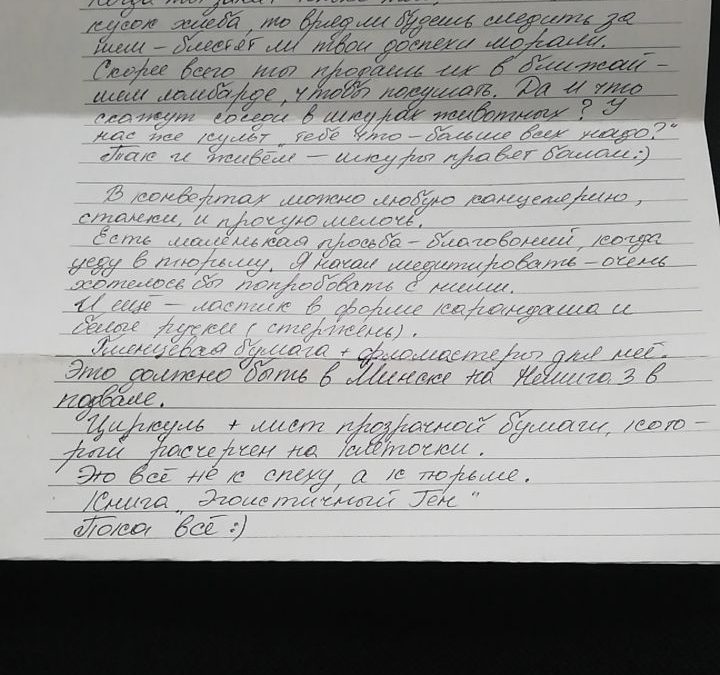 кусок хлеба, то вряд ли будешь следить за
тем - блестят ли твои доспехи морали.
Скорее всего ты продашь их в ближай-
шем ломбарде, чтобы покушать. Да и что
скажут соседи в шкурах животных? У
нас же культ „тебе что - больше всех надо?"
Так и живём - шкуры правят балом:)
В конвертах можно любую канцелярию,
станки, и прочую мелочь.
Есть маленькая просьба - благовоний, когда
уеду в тюрьму. Я начал медитировать - очень
хотелось бы попробовать с ними.
И ещё - ластик в форме карандаша и
белые ручки (стержень).
Глянцевая бумага + фломастеры для неё.
Это должно быть в Минске на Немига 3 в
подвале.
Циркуль + лист прозрачной бумаги, кото-
рый расчерчен на клеточки.
Это всё не к спеху, а к тюрьме.
Книга „Эгоистичный Ген"
Пока всё :)